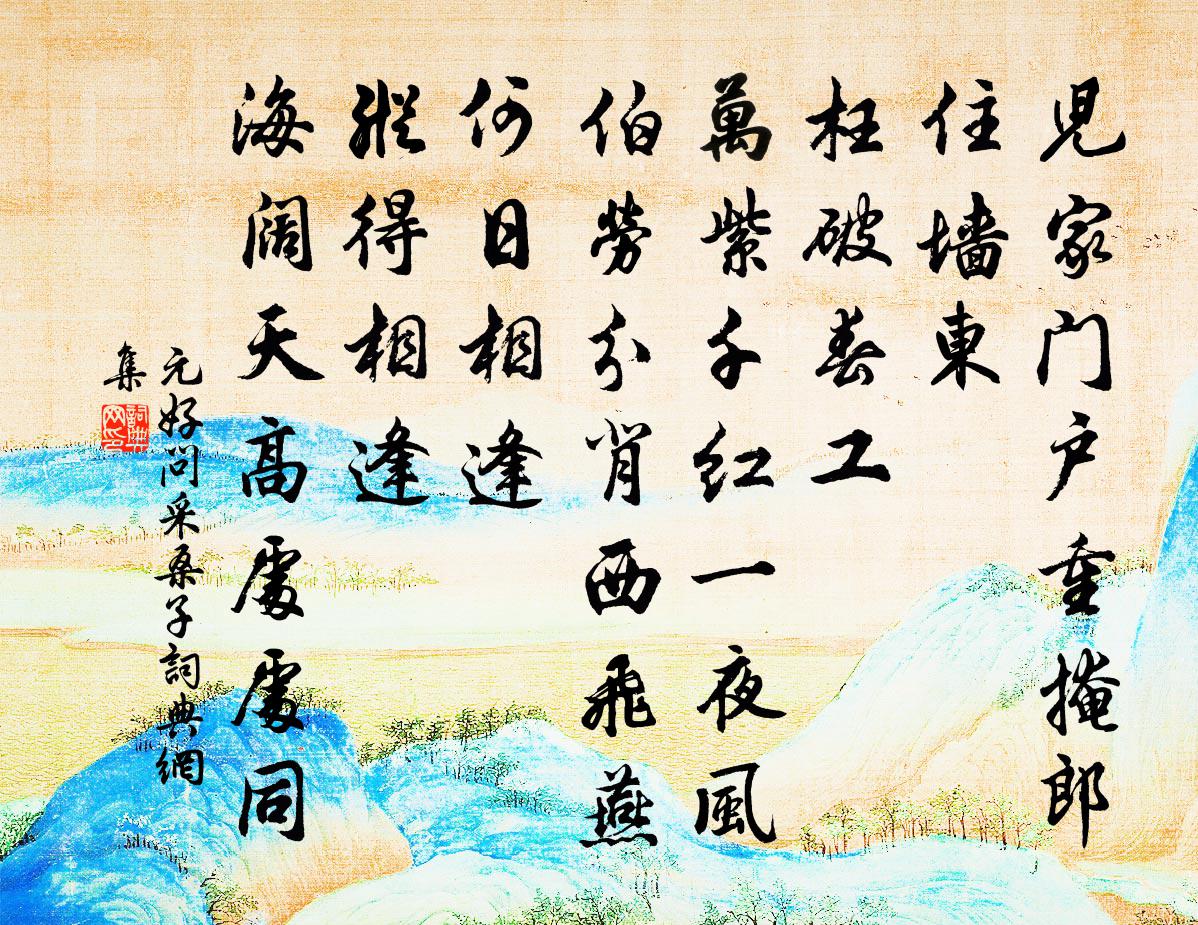 児家门户重掩郎
住墙東
枉破春工
萬紫千红一夜風
伯勞分背西飛燕
何日相逢
縱得相逢
海阔天高處處同
元好問采桑子詞典網
集
詞典
网印